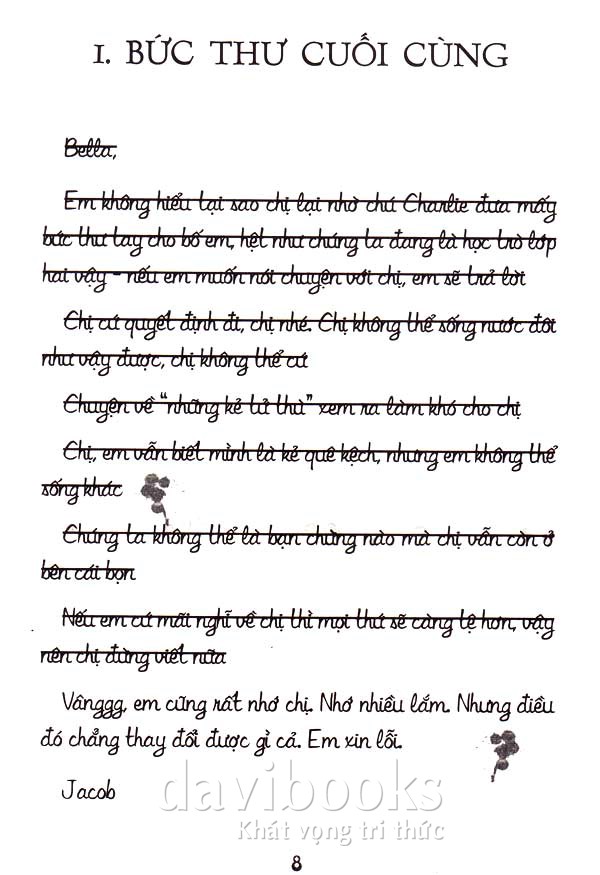 1. BỨC THƯ CUỐI CÙNG
Bella,
Em không hiểu tại sao chị lại nhờ chú Charlie đưa mấy
bức thư tay cho bố em, hệt như chúng ta đang là học trò lớp
hai vậy - nếu em muốn nói chuyện với chị, em sẽ trả lời
Chị cứ quyết định đi, chị nhé. Chị không thể sống nước đôi
như vậy được, chị không thể cứ
Chuyện về "những kẻ tử thù" xem ra làm khó cho chị
Chị, em vẫn biết mình là kẻ quê kệch, nhưng em không thể
sống khác
Chúng ta không thể là bạn chừng nào mà chị vẫn còn ở
bên cái bọn
Nếu em cứ mãi nghĩ về chị thì mọi thứ sẽ càng tệ hơn, vậy
nên chị đừng viết nữa
Vânggg, em cũng rất nhớ chị. Nhớ nhiều lắm. Nhưng điều
đó chẳng thay đổi được gì cả. Em xin lỗi.
Jacob
davibooks
Khát vọng tri thức
8